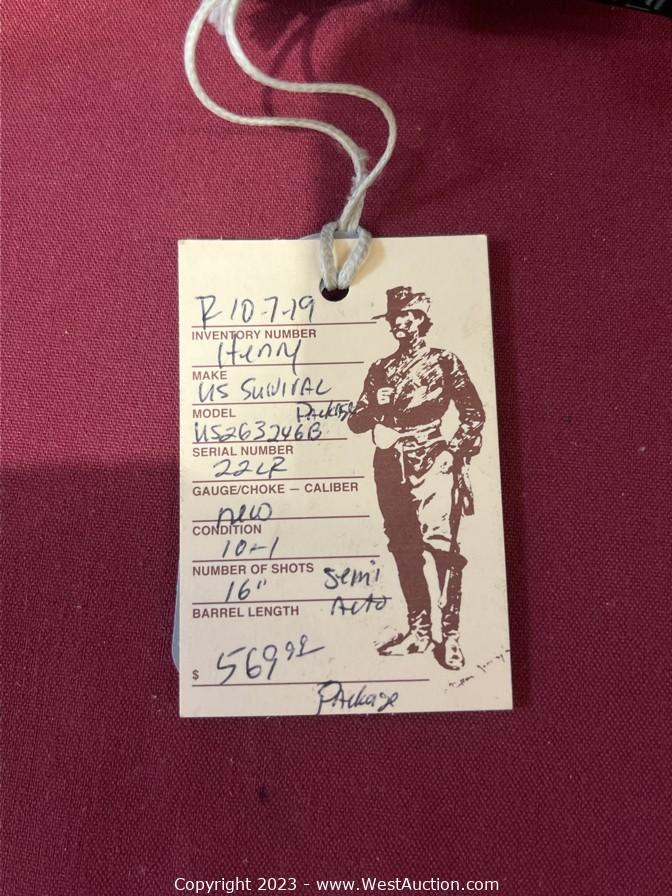 R-10-7-19
INVENTORY NUMBER
Henry
MAKE
US SURVIVAL
MODEL Package
US263246B
SERIAL NUMBER
22LR
GAUGE/CHOKE — CALIBER
new
CONDITION
10-1
NUMBER OF SHOTS semi
16" Auto
BARREL LENGTH
$ 569.99
Package
Copyright 2023 - www.WestAuction.com